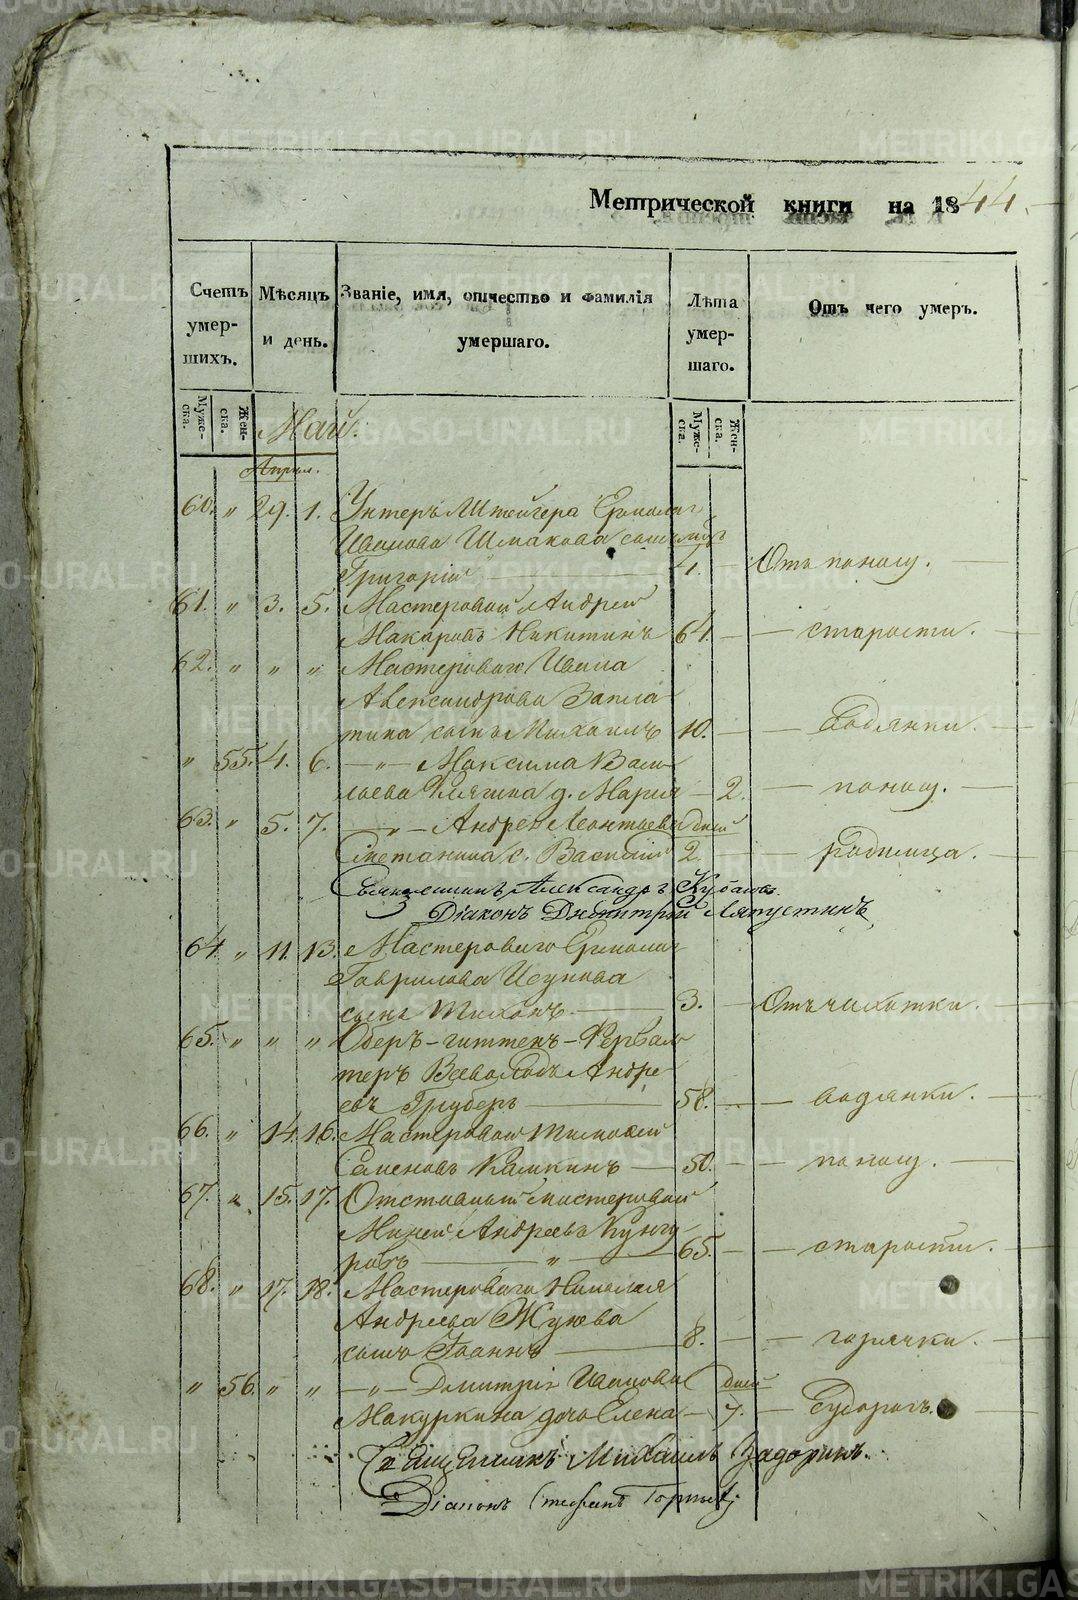 Метрической книги на 1844
Счетъ умер- шихъ.
Мѣсяцъ и день.
Званіе, имя, отчество и фамилія умершаго.
Лѣта умер- шаго.
Отъ чего умеръ.
Муже- ска.
Жен- ска.
Май.
Муже- ска.
Жен- ска.
Април.
60. " 29. 1. Унтеръ Штейгера Ермолая
Иванова Шмакова сынъ
Григорій — 4. — Отъ поносу. —
61. " 3. 5. Мастеровой Андрей
Макаровъ Никитинъ 64. — — старости. —
62. " " " Мастероваго Ивана
Александрова Запла
тина сынъ Михаилъ 10. — — водянки. —
" 55. 4. 6. — " — Максима Васи
льева Клягина д. Марія — 2. — поносу. —
63. " 5. 7. — " — Андрея Леонтьева дней
Сметанина с. Василій 2. — — родимца. —
Священникъ Александръ
Діаконъ Димитрій Ляпустинъ
64. " 11. 13. Мастероваго Ермолая
Гаврилова
сынъ Тихонъ — 3. — Отъ чихотки. —
65. " " " Оберъ-гиттенъ-Фервал
теръ Всеволодъ Андре
евъ Груберъ — 58. — — водянки. —
66. " 14. 16. Мастеровой Тимофей
Семеновъ Камкинъ — 50. — — поносу. —
67. " 15. 17. Отставный мастеровой
Миней Андреевъ Кунгу
ровъ — " — 65. — — старости. —
68. " 17. 18. Мастероваго Николая
Андреева Жукова
сынъ Іоаннъ — 8. — — горячки. —
" 56. " " — " — Димитрія Иванова дней
Макуркина дочь Елена — 7. — Судорогъ. —
Священникъ Михаилъ Задоринъ.
Діаконъ Стефанъ
METRIKI.GASO-URAL.RU